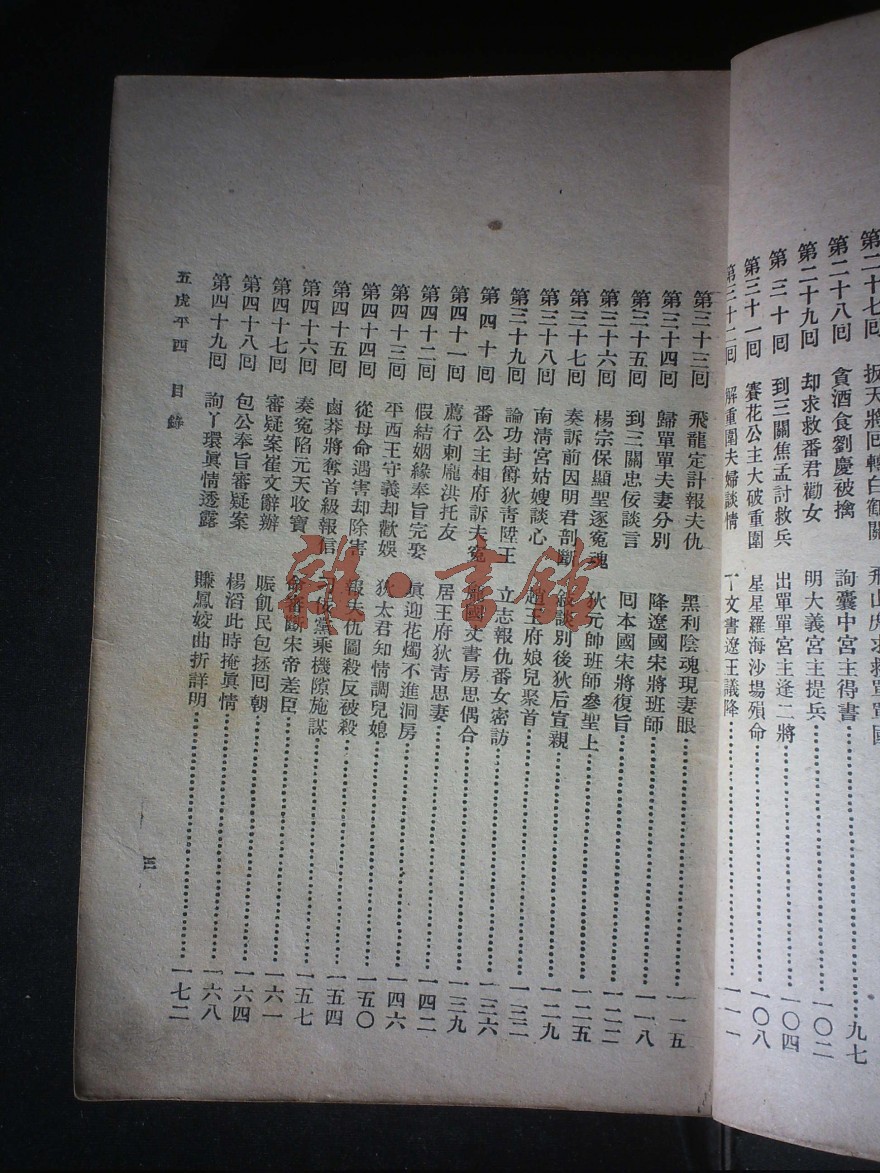 第二十七回 扳天將回轉白鶴關 飛山虎求救單單國
第二十八回 貪酒食劉慶被擒 詢囊中宮主得書…………九七
第二十九回 却求救番君勸女 明大義宮主提兵…………一〇二
第三十回 到三關焦孟討救兵 出單單宮主逢二將…………一〇四
第三十一回 賽花公主大破重圍 星星羅海沙場殞命…………一〇八
第三十二回 解重圍夫婦談情 丁文書遼王議降…………一一一
第三十三回 飛龍定計報夫仇 黑利陰魂現妻眼…………一一五
第三十四回 歸單單夫妻分別 降遼國宋將班師…………一一八
第三十五回 到三關忠佞談言 囘本國宋將復旨…………一二二
第三十六回 楊宗保顯聖逐冤魂 狄元帥班師參聖上…………一二五
第三十七回 奏訴前因明君剖斷 敍談別後狄后宣親…………一二九
第三十八回 南淸宮姑嫂談心 趙王府娘兒聚首…………一三二
第三十九回 論功封爵狄靑陞王 立志報仇番女密訪…………一三六
第四十回 番公主相府訴夫冤 龐國丈書房思偶合…………一三九
第四十一回 薦行刺龐洪托友 居王府狄靑思妻…………一四二
第四十二回 假結姻緣奉旨完娶 眞迎花燭不進洞房…………一四六
第四十三回 平西王守義却歡娛 狄太君知情調兒媳…………一五〇
第四十四回 從母命遇害却除害 報夫仇圖殺反被殺…………一五四
第四十五回 鹵莽將奪首級報信 刁佞黨乘機隙施謀…………一五七
第四十六回 奏冤陷元天收寶 命審斷宋帝差臣…………一六一
第四十七回 審疑案崔文辭辦 賑飢民包拯回朝…………一六四
第四十八回 包公奉旨審疑案 楊滔此時掩眞情…………一六八
第四十九回 詢丫環眞情透露 賺鳳姣曲折詳明…………一七二
五虎平西 目錄 三
雜·書館